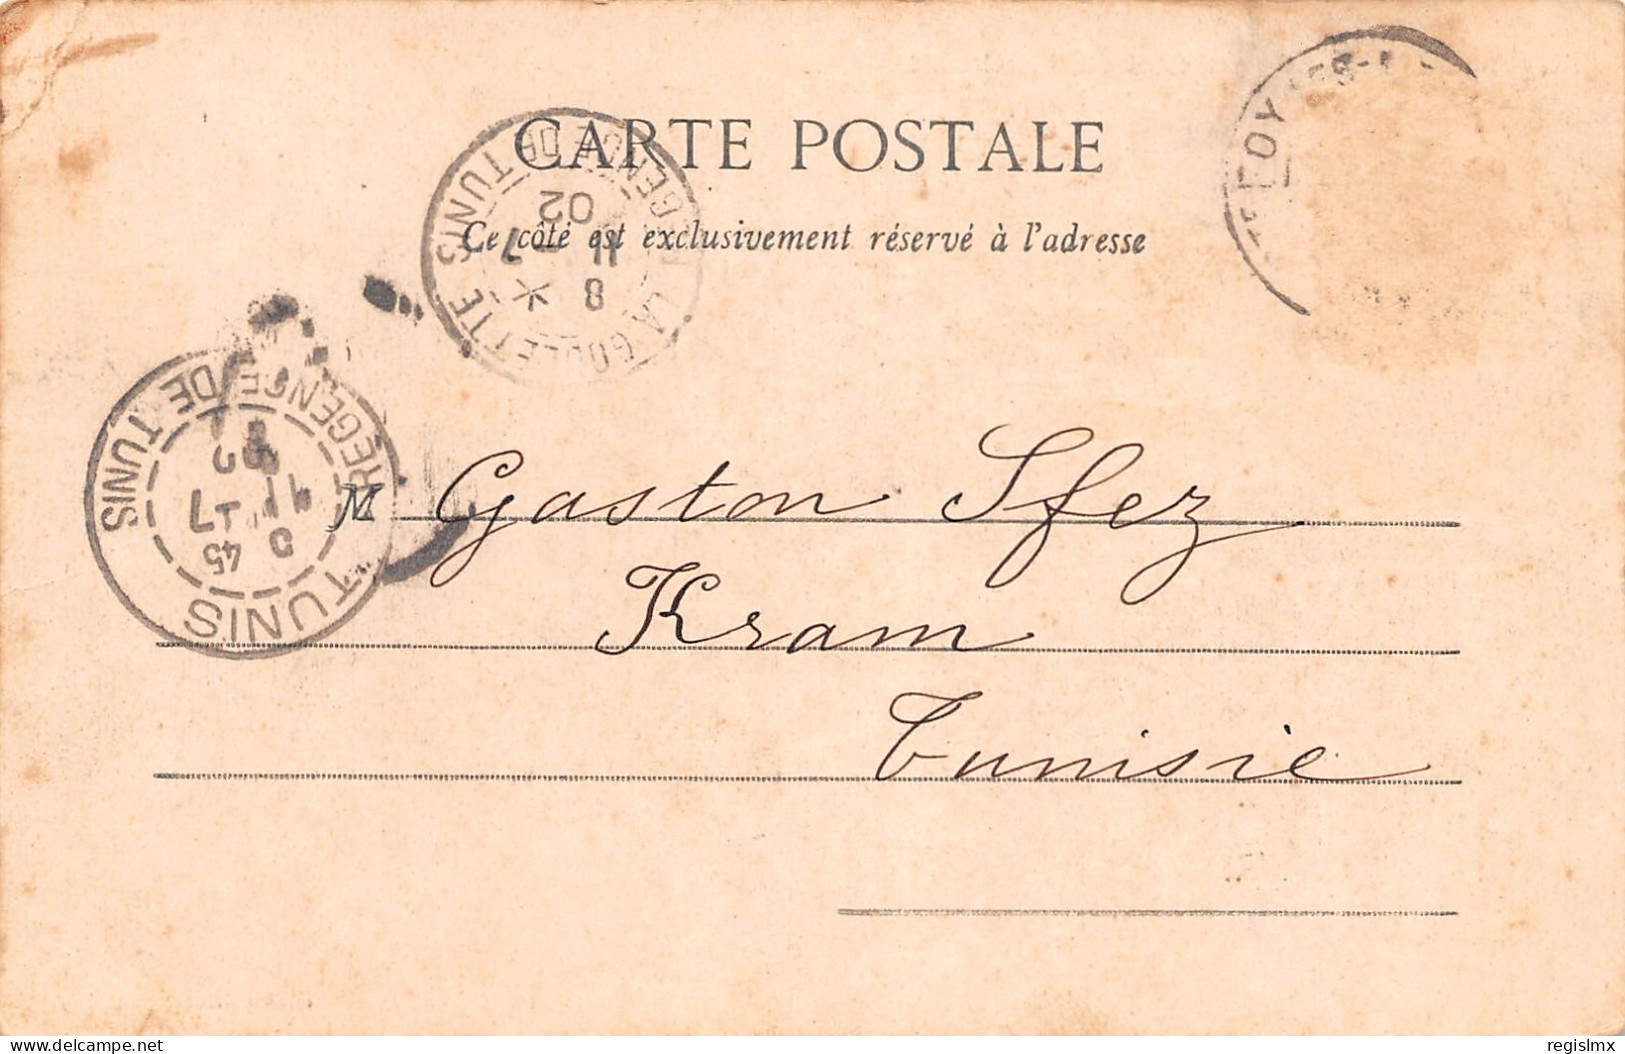 CARTE POSTALE
Ce côté est exclusivement réservé à l'adresse
LA GOULETTE
RÉGENCE DE TUNIS
8 *
11 -7
02
TUNIS
RÉGENCE DE TUNIS
45
11 -7
FOY
M Gaston Sfez
Kram
Tunisie
delcampe.net
regislmx